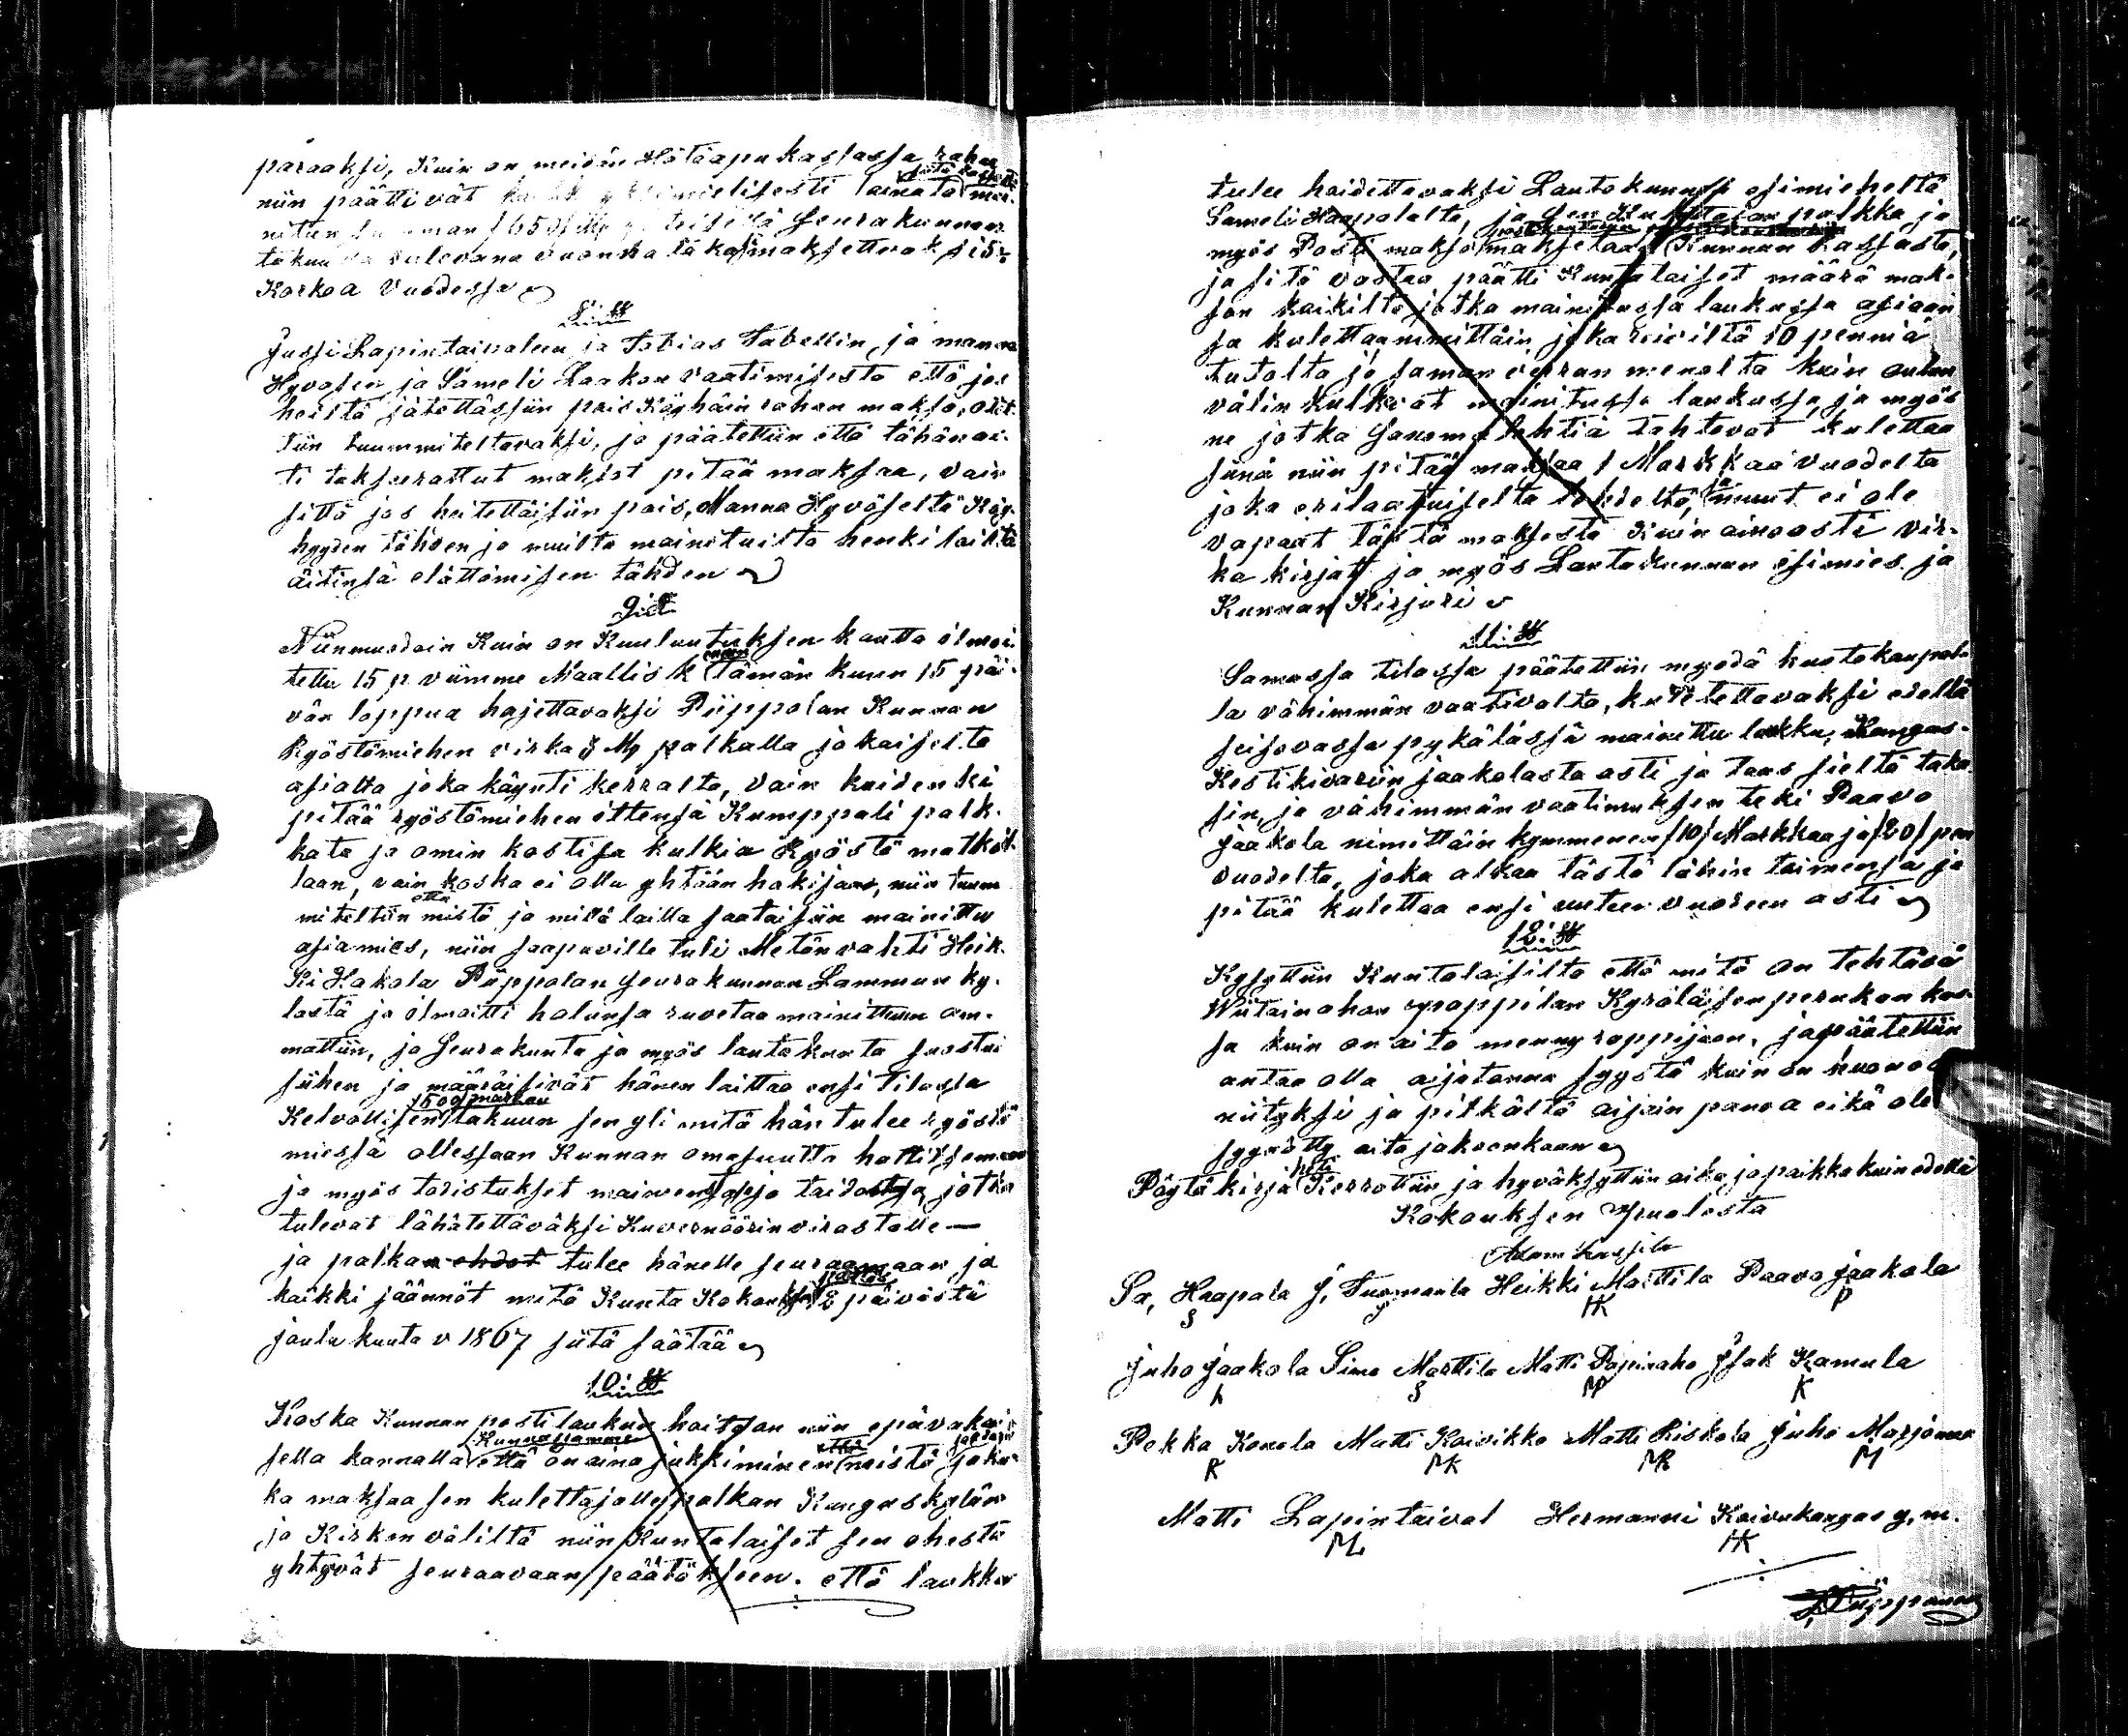 paraaksi, Kuin on meidän Hätäapu kassassa rahaa
niin päättivät yksimielisesti lainata mai-
nitun summan /65 Seurakunnan
takuu tulevana vuonna takasi maksettavaksi 5
Korkoa Vuodessa
8:§§
Jussi Lapintaipaleen ja Tobias Tabellin, ja manna
Hyvösen ja Sameli Laakon vaatimisesta että jos
heistä jätettäisiin pois Köyhäin rahan makso, otet-
tiin tuummiteltavaksi, ja päätettiin että tähänas-
ti takseerattut maksot pitää maksaa, vain
sittä jos heitettäisiin pois, Manna Hyvöseltä Köy-
hyyden tähden ja muilta mainituilta henkilöiltä
äitinsä elättämisen tähden
9:§
Niinmuodoin Kuin on Kuuluutuksen kautta ilmoi-
tettu 15 p viimme Maallisk tämän kuun 15 päi-
vän loppua hajettavaksi Piippolan Kunnan
Ryöstömiehen virka 8 Mk palkalla jokaiselta
asialta joka käynti kerralta, vain kuidenki
pitää ryöstömiehen ittensä Kumppali palk-
kata ja omin kostisa kulkia Ryöstö matkoil-
laan, vain koska ei ollu yhtään hakijaa, niin tuum
miteltiin että mistä ja millä lailla saataisiin mainittu
asiamies, niin saapuville tuli Metän vahti Heik-
ki Hakola Piippolan seurakunnan Lammun ky-
lästä ja ilmoitti halunsa ruvetaa mainittuun am-
mattiin, ja seurakunta ja myös lautakunta suostui
siihen ja määräisivät hänen laittaa ensi tilassa
Kelvollisen /500/ markan takuun sen yli mitä hän tulee ryöstö
miessä ollessaan Kunnan omasuutta
ja myös todistukset maineensa ja taidostasa, jotka
tulevat lähätettäväksi Kuvernöörinvirastolle —
ja palkan ehdot tulee hänelle seuraamaan ja
kaikki jäännöt mitä Kunta Kokouksen päätös 2 päivästä
joulu kuuta v 1867 siitä säätää
10:§§
Koska Kunnan postilaukun hoitoan niin epävakai-
sella kannalla Kunnassamme että on aina jukkiminen että meistä joku
ka maksaa sen kulettajalle palkan Kangaskylän
ja Kirkon väliltä niin Kuntalaiset sen ohesta
yhtyvät seuraavaan päätökseen. että laukku
tulee hoidettavaksi Lautakunnan esimieheltä
Sameli Haapalalta, ja sen Kulettajan palkka ja
myös Posti makso maksetaan Kunnan kassasta,
ja sitä vastaa päätti Kuntalaiset määrä mak-
son kaikilta jotka mainitussa laukussa asioan
sa kulettaa nimittäin joka kirjeiltä 10 penniä
tutolta ja saman verran menolta kuin oulun
välin kulkevat mainitussa laukussa, ja myös
ne jotka Sanoma lehtiä tahtovat kulettaa
siinä niin pitää maksaa 1 Markkaa vuodelta
joka erilaatuiselta lehdeltä, ja muut ei ole
vapaat tästä maksosta Kuin ainoasti vir-
ka kirjat ja myös Lautakunnan esimies ja
Kunnan Kirjuri
11:§§
Samassa tilassa päätettiin myödä huutokaupal-
la vähimmän vaativalta, kuletettavaksi edellä
seisovassa pykälässä mainittu laukku, Kangas-
Kestikivariin jaakolasta asti ja taas sieltä taka-
sin, ja vähimmän vaatimuksen teki Paavo
Jaakola nimittäin kymmenen /10/ Markkaa ja /20/ pen
vuodelta, joka alkaa tästä lähin toimensa ja
pitää kulettaa ensi uuteen vuoteen asti
12:§§
Kysyttiin Kuntalaisilta että mitä on tehtävä
Wiitainahon Kyröläisen perukan kans-
sa kuin on aita menny rappijoon, ja päätettiin
antaa olla aijatanna syystä kuin on huonoa
niityksi ja pitkältä aijain panna eikä ole
syynätty aita jakoonkaan
Pöytäkirja heti Kerrottiin ja hyväksyttiin aika ja paikka kuin edellä
Kokouksen Puolesta
Adam Lassila
Sa, Haapala J, Tuomaala Heikki Marttila Paavo Jaakola
S J HK P
Juho Jaakola Simo Marttila Matti Papinaho Isak Kamula
S MP K
Pekka Konola Matti Koivikko Matti Riskala Juho Marjomaa
K MK MR M
Matti Lapintaival Hermanni Koivukangas y. m.
ML HK
Piipponen